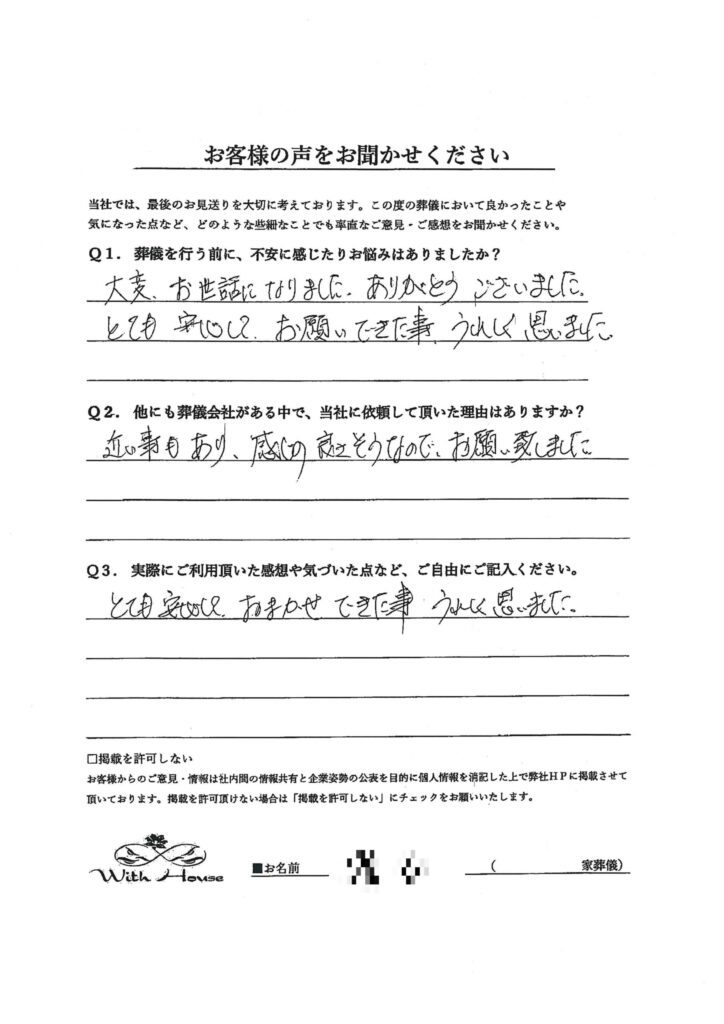 お客様の声をお聞かせください
当社では、最後のお見送りを大切に考えております。この度の葬儀において良かったことや
気になった点など、どのような些細なことでも率直なご意見・ご感想をお聞かせください。
Q1. 葬儀を行う前に、不安に感じたりお悩みはありましたか?
大変、お世話になりました。ありがとうございました。
とても安心して、お願いできた事、うれしく思いました。
Q2. 他にも葬儀会社がある中で、当社に依頼して頂いた理由はありますか?
近い事もあり、感じの良さそうなので、お願い致しました
Q3. 実際にご利用頂いた感想や気づいた点など、ご自由にご記入ください。
とても安心して、おまかせできた事 うれしく思いました。
□掲載を許可しない
お客様からのご意見・情報は社内間の情報共有と企業姿勢の公表を目的に個人情報を消記した上で弊社HPに掲載させて
頂いております。掲載を許可頂けない場合は「掲載を許可しない」にチェックをお願いいたします。
With House ■お名前 ( 家葬儀)